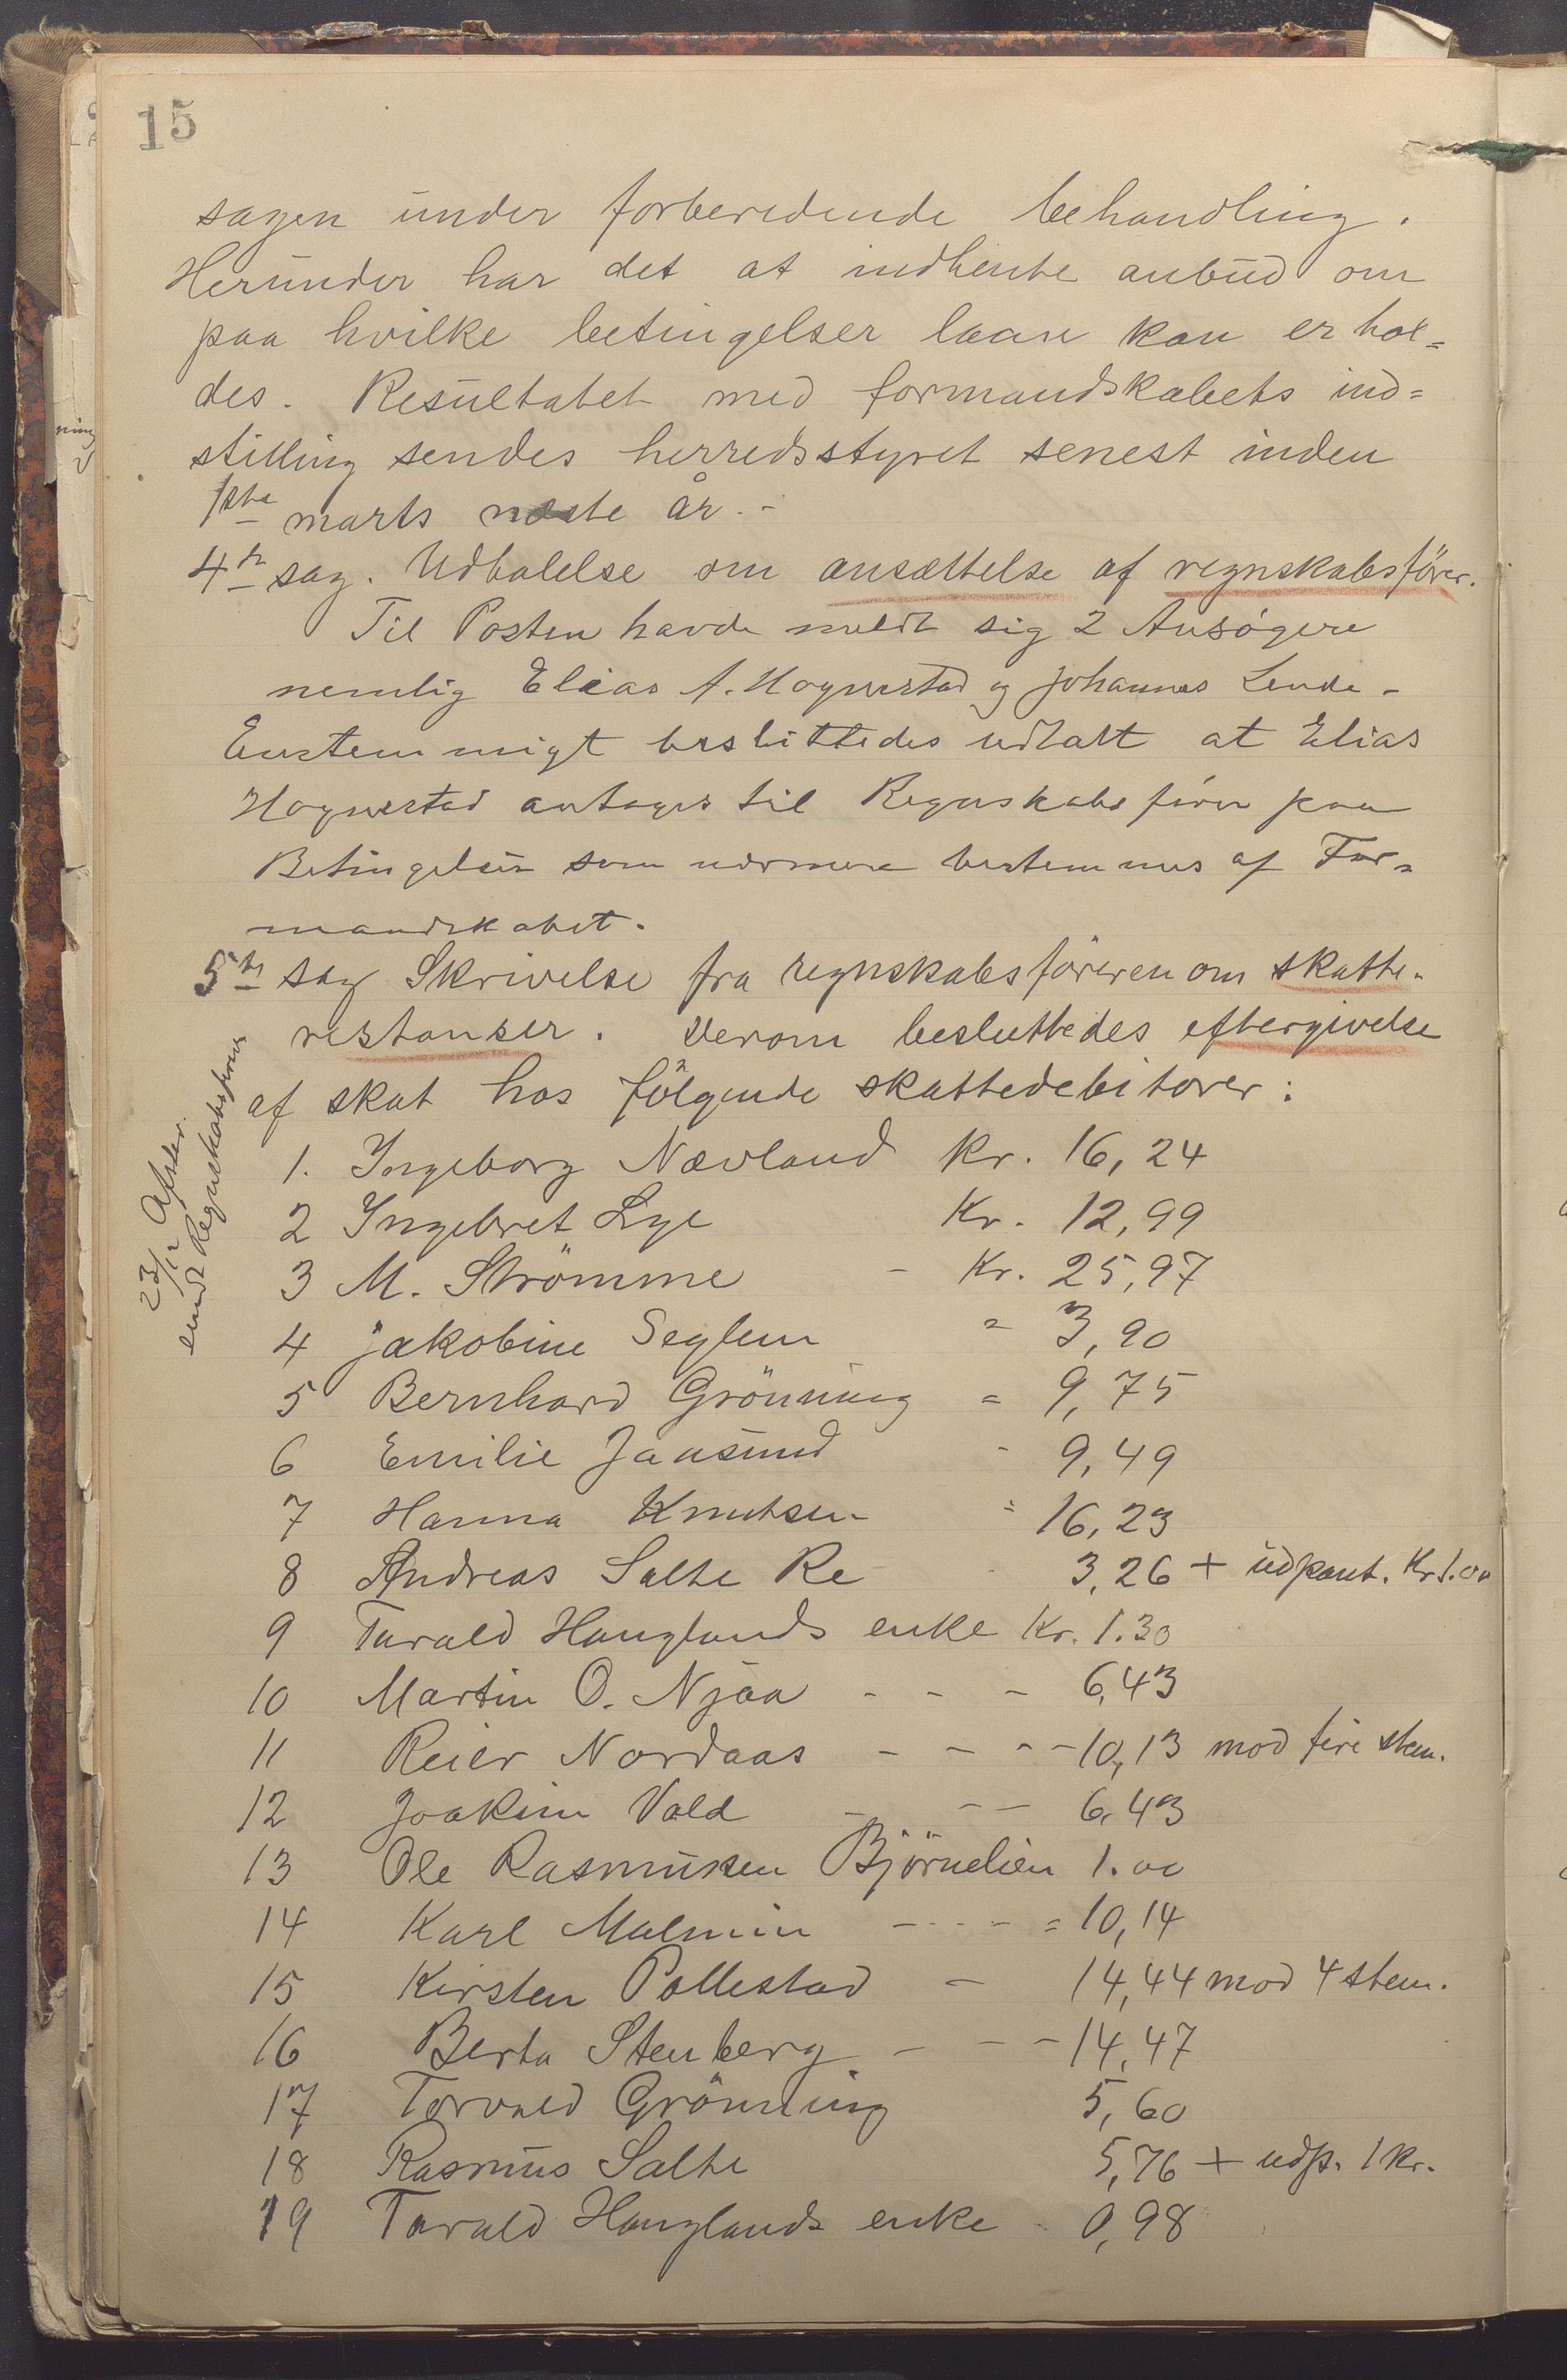 15
sagen under forberedende behandling.
Herunder har det at indhente anbud om
paa hvilke betingelser laan kan erhol=
des. Resultatet med formandskabets ind=
stilling sendes herredsstyret senest inden
1ste marts næste år. -
4de sag. Udtalelse om ansættelse af regnskabsförer.
Til Posten havde meldt sig 2 Ansögere
nemlig Elias A. Hognestad og Johannes Lende -
Enstemmigt besluttedes udtalt at Elias
Hognestad antages til Regnskabsförer paa
Betingelser som nærmere bestemmes af For=
mandskabet.
5te sag Skrivelse fra regnskabsföreren om skatte-
restanser. Derom besluttedes eftergivelse
af skat hos fölgende skattedebitorer:
23/12 Afskr.
sendt Regnskabsförer
1. Ingeborg Nævland Kr. 16,24
2 Ingebret Lye Kr. 12,99
3 M. Strömme - Kr. 25,97
4 Jakobine Seglem = 3,90
5 Bernhard Grönning = 9,75
6 Emilie Jansund - 9,49
7 Hanna Knutsen = 16,23
8 Andreas Salte Re 3,26 + udpant. Kr 1.00
9 Tarald Hauglands enke Kr. 1.30
10 Martin O. Njaa - - - 6,43
11 Reier Nordaas - - - - 10,13 mod fire stem.
12 Joakim Vold - - - 6,43
13 Ole Rasmusen Björnelien 1.00
14 Karl Malmin - - - - = 10,14
15 Kirsten Pollestad - 14,44 mod 4 stem.
16 Berta Stenberg - - - 14,47
17 Torvald Grönning 5,60
18 Rasmus Salte 5,76 + udp. 1 kr.
19 Tarald Hauglands enke - 0,98